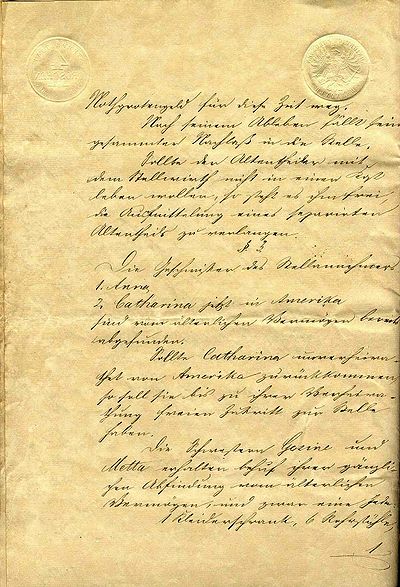 Nothpfotengeld für diese Zeit weg.
Nach seinem Ableben fällt sein
gesammter Nachlaß in die Stelle.
Sollte der Altentheiler mit
dem Stellwirth nicht in einer Kost
leben wollen, so steht es ihm frei,
die Ausmittelung eines separirten
Altentheils zu verlangen.
§ 3
Die Geschwister des Stellannehmers
1. Anna,
2. Catharina jetzt in Amerika
sind vom älterlichen Vermögen bereits
abgefunden.
Sollte Catharina unverheira-
thet von Amerika zurückkommen
so soll sie bis zu ihrer Verheira-
thung freien Zutritt zur Stelle
haben.
Die Schwestern Gesine und
Metta erhalten behuf ihrer gänzli-
chen Abfindung vom älterlichen
Vermögen, und zwar eine Jede:
1 Kleiderschrank, 6 Rohrstühle,
1